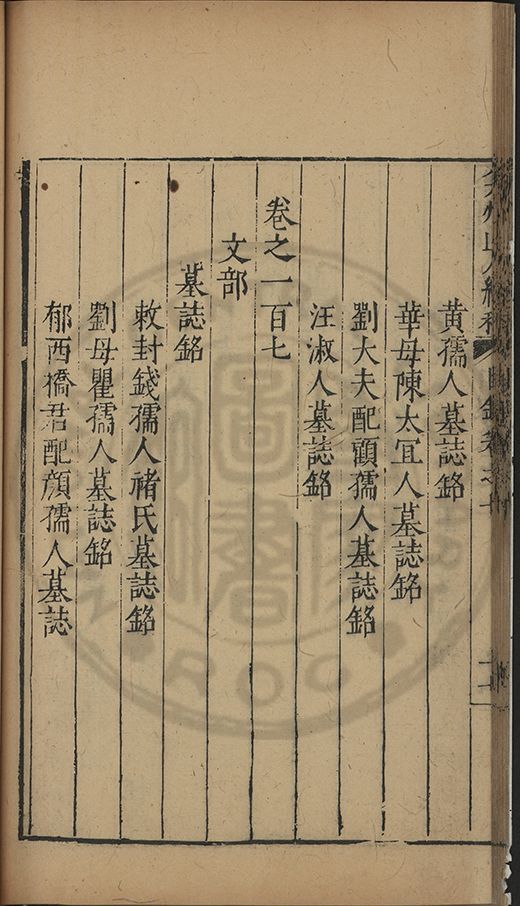 黄孺人墓誌銘
華母陳太宜人墓誌銘
劉大夫配顧孺人墓誌銘
汪淑人墓誌銘
卷之一百七
文部
墓誌銘
敕封錢孺人禇氏墓誌銘
劉母瞿孺人墓誌銘
郁西橋君配顔孺人墓誌